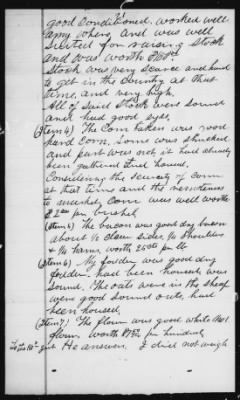 good conditioned, worked well
any where, and was well
suited for raising stock
and was worth
Stock was very scarce and hard
to get in the country at that
time, and very high.
All of said stock were sound
and had good eyes,
(Item 4) The Corn taken was good
hard Corn, some was shucked
and part was not it had already
been gathered and housed,
Considering the scarcity of corn
at that time and the nearness
to market, Corn was well worth
per bushel,
(Item 5) The bacon was good dry bacon
about ½ clear sides, ¼ shoulders
¼ hams, worth 25¢ per lb
(Item 6) My fodder was good dry
fodder. had been housed, was
sound, The oats were in the sheaf
were good sound oats, had
been housed,
(Item 7) The flour was good white
flour. Worth per hundred,
To the 10th He answers, I did not weigh